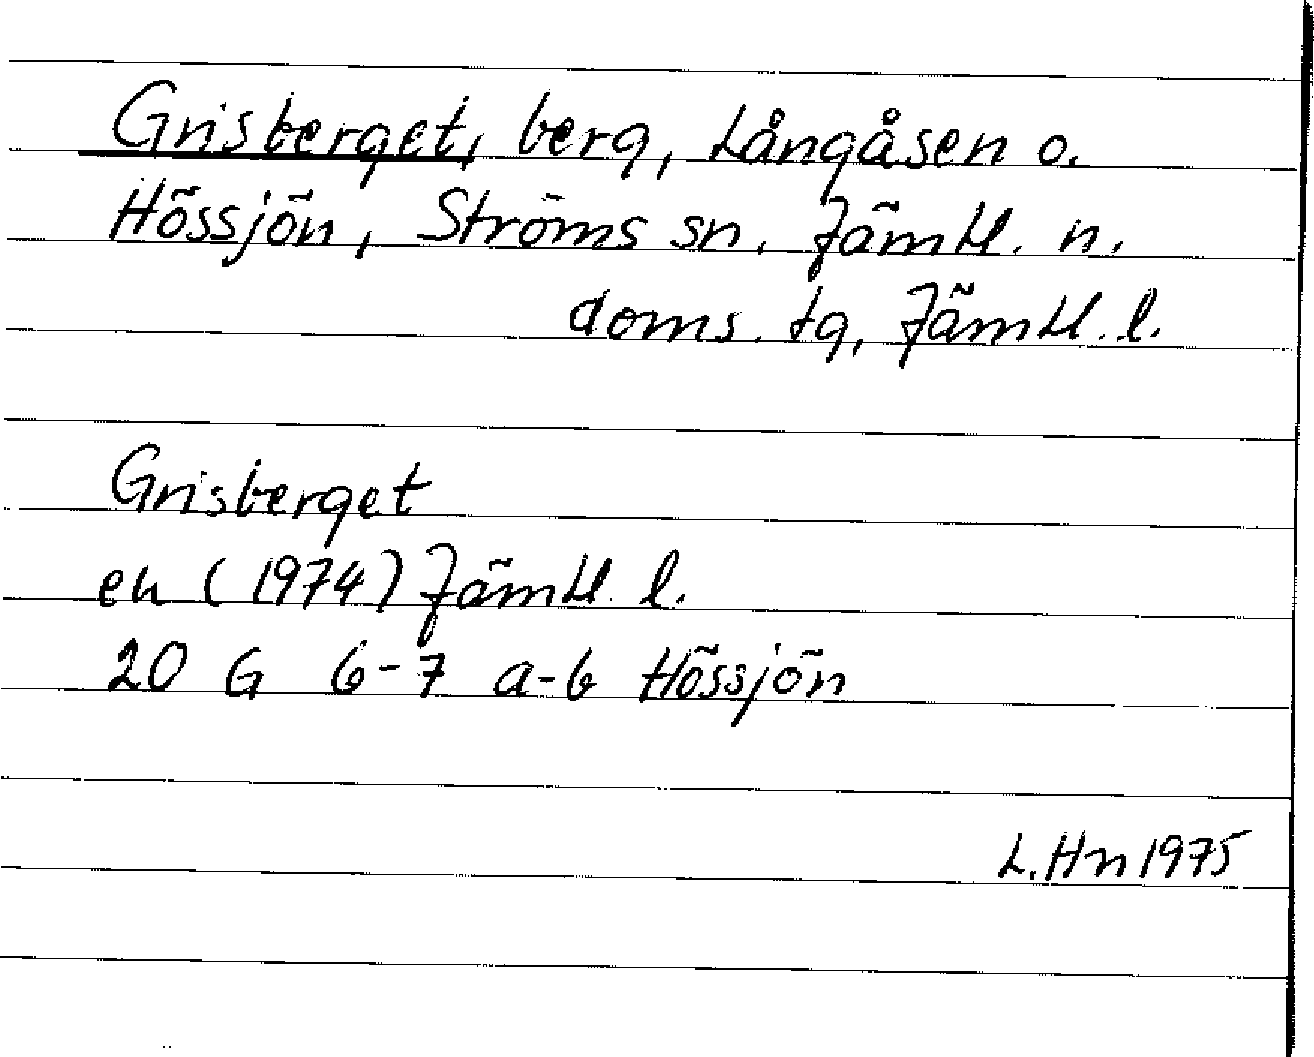 Grisberget, berg, Långåsen o.
Hössjön, Ströms sn. Jämtl. n.
doms. tg, Jämtl. l.
Grisberget
ek (1974) Jämtl. l.
20 G 6-7 a-b Hössjön
L. Hn 1975